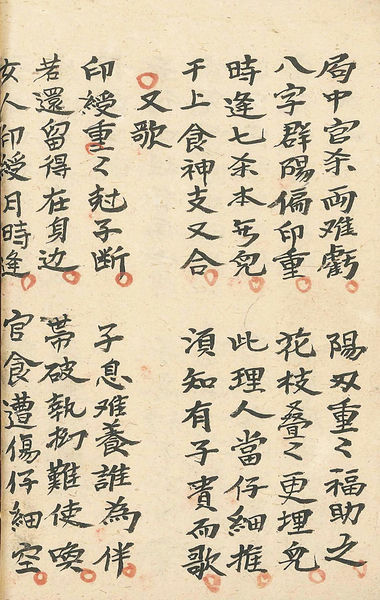 局中官杀両难虧　陽刃重〻福助之
八字群陽偏印重　花枝叠〻更埋児
時逢七杀本无児　此理人當仔細推
干上食神支又合　湏知有子貴而歌
又歌
印綬重〻尅子断　子息难養誰為伴
若還留得在身边　帶破執拗難使喚
女人印綬月時逢　官食遭傷仔細空